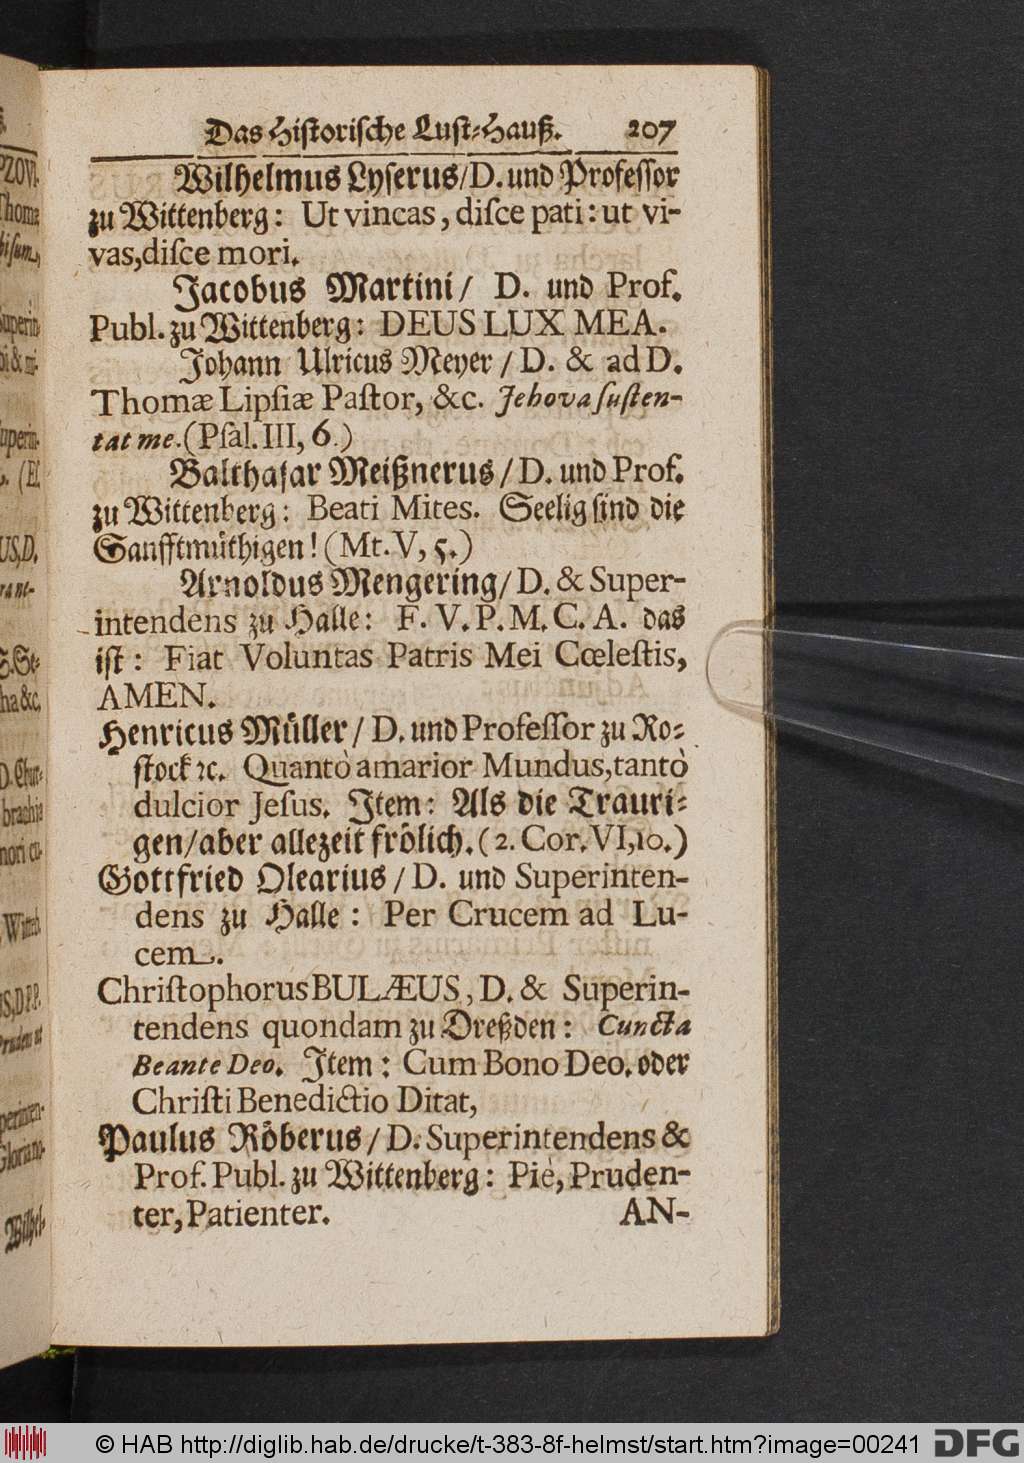 Das Historische Lust-Hauß. 207
Wilhelmus Lyserus/D. und Professor
zu Wittenberg: Ut vincas, disce pati: ut vi-
vas, disce mori.
Jacobus Martini/ D. und Prof.
Publ. zu Wittenberg: DEUS LUX MEA.
Johann Ulricus Meyer/D. & ad D.
Thomæ Lipsiæ Pastor, &c. Jehova susten-
tat me. (Psal. III, 6.)
Balthasar Meißnerus/D. und Prof.
zu Wittenberg: Beati Mites. Seelig sind die
Sanfftmüthigen! (Mt. V, 5.)
Arnoldus Mengering/D. & Super-
intendens zu Halle: F. V. P. M. C. A. das
ist: Fiat Voluntas Patris Mei Cœlestis,
AMEN.
Henricus Müller/D. und Professor zu Ro-
stock ꝛc. Quantò amarior Mundus, tantò
dulcior Jesus. Item: Als die Trauri-
gen/aber allezeit frölich. (2. Cor. VI, 10.)
Gottfried Olearius/D. und Superinten-
dens zu Halle: Per Crucem ad Lu-
cem.
Christophorus BULÆUS, D. & Superin-
tendens quondam zu Dreßden: Cuncta
Beante Deo. Item: Cum Bono Deo. oder
Christi Benedictio Ditat,
Paulus Röberus/D. Superintendens &
Prof. Publ. zu Wittenberg: Piè, Pruden-
ter, Patienter. AN-
© HAB http://diglib.hab.de/drucke/t-383-8f-helmst/start.htm?image=00241
DFG